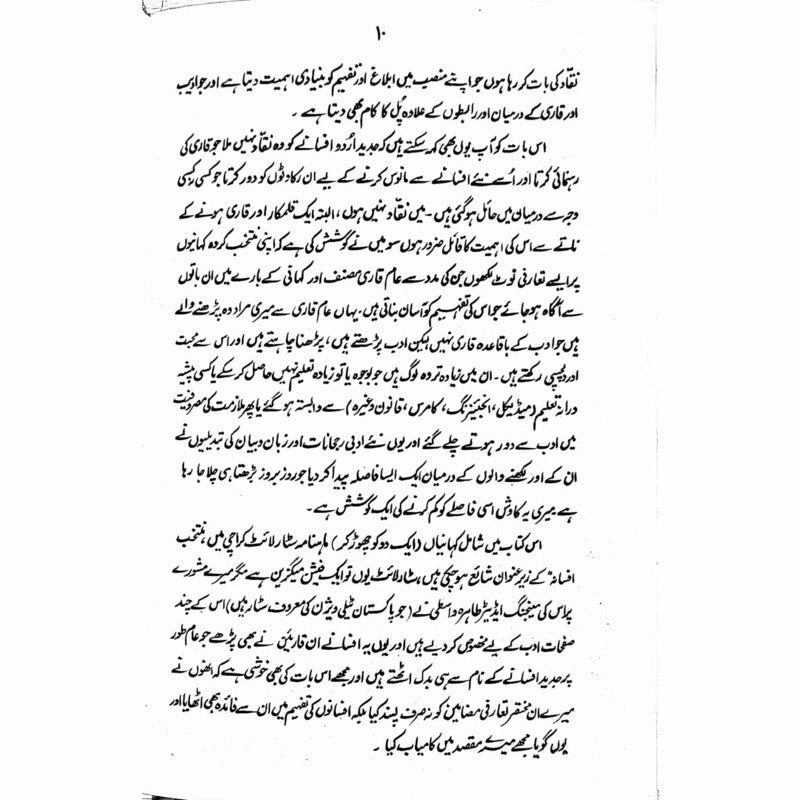 ۱۰
نقّاد کی بات کر رہا ہوں جو اپنے منصب میں ابلاغ اور تفہیم کو بنیادی اہمیت دیتا ہے اور جو ادیب
اور قاری کے درمیان اور رابطوں کے علاوہ پُل کا کام بھی دیتا ہے ۔
اس بات کو آپ یوں بھی کہہ سکتے ہیں کہ جدید اُردو افسانے کو وہ نقّاد نہیں ملا جو قاری کی
رہنمائی کرتا اور اُسے نئے افسانے سے مانوس کرنے کے لیے ان رکاوٹوں کو دور کرتا جو کسی نہ کسی
وجہ سے درمیان میں حائل ہو گئی ہیں ۔ میں نقّاد نہیں ہوں ، البتہ ایک قلمکار اور قاری ہونے کے
ناتے سے اس کی اہمیت کا قائل ضرور ہوں سو میں نے کوشش کی ہے کہ اپنی منتخب کردہ کہانیوں
پر ایسے تعارفی نوٹ لکھوں جن کی مدد سے عام قاری مصنف اور کہانی کے بارے میں ان باتوں
سے آگاہ ہو جائے جو اس کی تفہیم کو آسان بناتی ہیں ۔ یہاں عام قاری سے میری مراد وہ پڑھنے والے
ہیں جو ادب کے باقاعدہ قاری نہیں لیکن ادب پڑھتے ہیں ، پڑھنا چاہتے ہیں اور اس سے محبت
اور دلچسپی رکھتے ہیں ۔ ان میں زیادہ تر وہ لوگ ہیں جو بوجوہ یا تو زیادہ تعلیم نہیں حاصل کر سکے یا کسی پیشہ
ورانہ تعلیم (میڈیکل ، انجینئرنگ ، کامرس ، قانون وغیرہ) سے وابستہ ہو گئے یا پھر ملازمت کی مصروفیت
میں ادب سے دور ہوتے چلے گئے اور یوں نئے ادبی رجحانات اور زبان و بیان کی تبدیلیوں نے
ان کے اور لکھنے والوں کے درمیان ایک ایسا فاصلہ پیدا کر دیا جو روز بروز بڑھتا ہی چلا جا رہا
ہے میری یہ کاوش اسی فاصلے کو کم کرنے کی ایک کوشش ہے ۔
اس کتاب میں شامل کہانیاں (ایک دو کو چھوڑ کر) ماہنامہ سٹار لائٹ کراچی میں "منتخب
افسانہ" کے زیر عنوان شائع ہو چکی ہیں ، سٹار لائٹ یوں تو ایک فیشن میگزین ہے مگر میرے مشورے
پر اس کی مینجنگ ایڈیٹر طاہرہ واسطی نے (جو پاکستان ٹیلی ویژن کی معروف سٹار ہیں) اس کے چند
صفحات ادب کے لیے مخصوص کر دیے ہیں اور یوں یہ افسانے ان قارئین نے بھی پڑھے جو عام طور
پر جدید افسانے کے نام سے ہی بدک اٹھتے ہیں اور مجھے اس بات کی بھی خوشی ہے کہ انھوں نے
میرے ان مختصر تعارفی مضامین کو نہ صرف پسند کیا بلکہ افسانوں کی تفہیم میں ان سے فائدہ بھی اٹھایا اور
یوں گویا مجھے میرے مقصد میں کامیاب کیا ۔